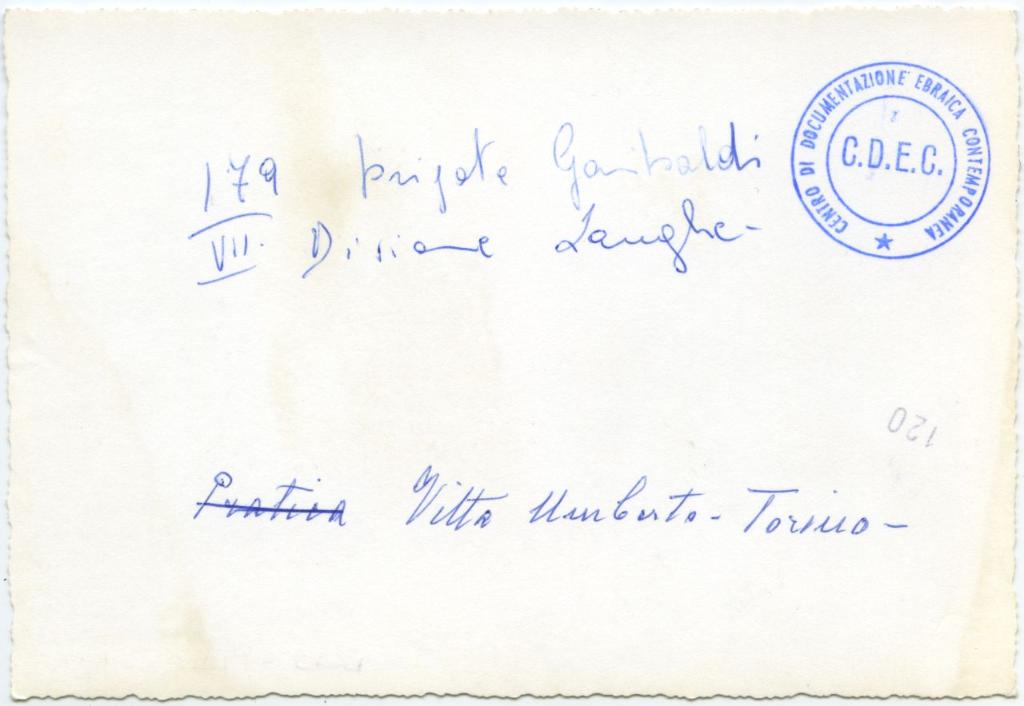 CENTRO DI DOCUMENTAZIONE EBRAICA CONTEMPORANEA
C.D.E.C.
179 brigata Garibaldi
VII. Divisione Langhe-
120
Pratica Vitta Umberto - Torino -